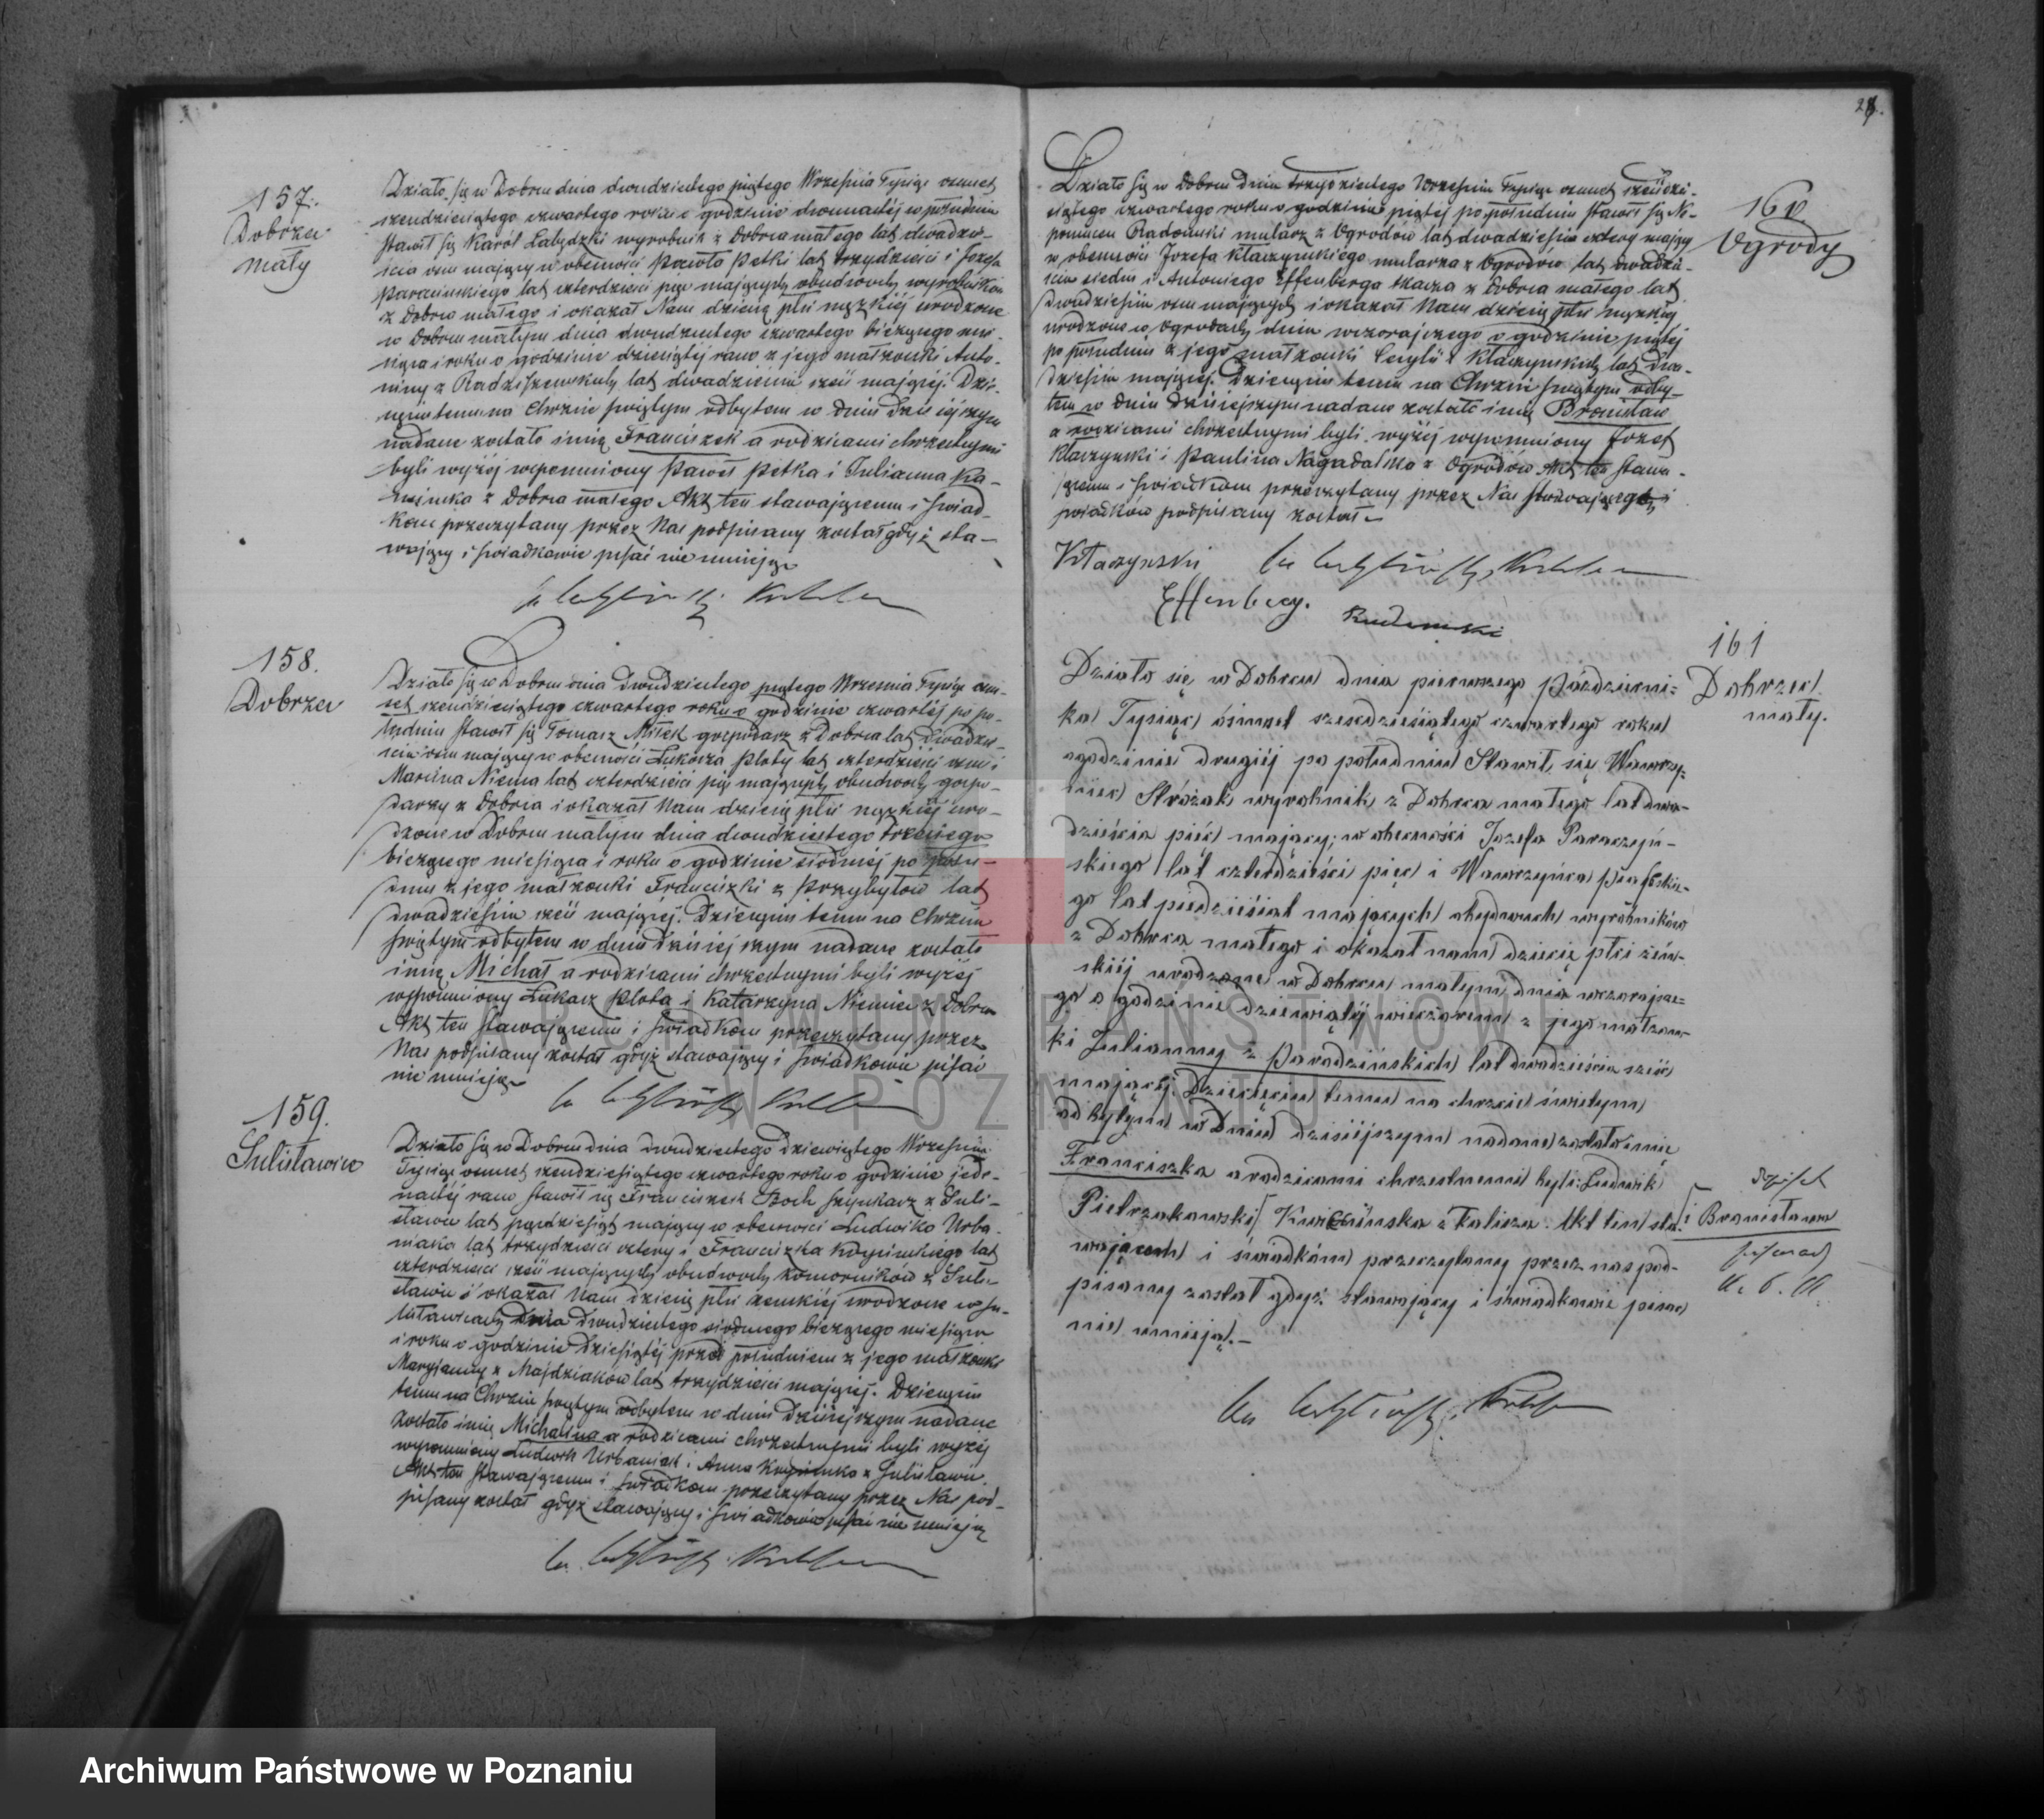 157.
Dobrzec
mały
Działo się w Dobrcu dnia dwudziestego piątego Września Tysiąc ośmset
sześdziesiątego czwartego roku o godzinie dwunastéj w południe
stawił się Karól Łabędzki wyrobnik z Dobrca małego lat dwadzie-
ścia osm mający w obecności Pawła Petki lat trzydzieści i Józefa
lat czterdzieści pięć mających obudwóch wyrobników
z Dobrca małego i okazał Nam dziecię płci męzkiéj urodzone
w Dobrcu małym dnia dwudziestego czwartego bieżącego mie-
siąca i roku o godzinie dziesiątéj rano z jego małżonki Anto-
niny z Radziszewskich lat dwadzieścia sześć mającéj. Dzie-
cięciu temu na Chrzcie świętym odbytem w dniu dzisiéjszym
nadane zostało imię Franciszek a rodzicami chrzestnymi
byli wyżéj wspomniony Paweł Petka i Julianna
z Dobrca małego Akt ten stawającemu i świad-
kom przeczytany przez Nas podpisany został gdyż sta-
wający i świadkowie pisać nie umieją
158.
Dobrzec
Działo się w Dobrcu dnia dwudziestego piątego Września Tysiąc ośm-
set sześdziesiątego czwartego roku o godzinie czwartéj po po-
łudniu stawił się Tomasz Miłek gospodarz z Dobrca lat dwadzie-
ścia osm mający w obecności Łukasza Płoty lat czterdzieści osm i
Marcina Niema lat czterdzieści pięć mających obudwóch gospo-
darzy z Dobrca i okazał Nam dziecię płci męzkiéj uro-
dzone w Dobrcu małym dnia dwudziestego trzeciego
bieżącego miesiąca i roku o godzinie siódméj po połu-
dniu z jego małżonki Franciszki z Przybyłów lat
dwadzieścia sześć mającéj. Dziecięciu temu na Chrzcie
świętym odbytem w dniu dzisiéjszym nadane zostało
imię Michał a rodzicami chrzestnymi byli wyżéj
wspomniony Łukasz Płota i Katarzyna Niemiec z Dobrca
Akt ten stawającemu i świadkom przeczytany przez
Nas podpisany został gdyż stawający i świadkowie pisać
nie umieją
159.
Sulisławice
Działo się w Dobrcu dnia dwudziestego dziewiątego Września
Tysiąc ośmset sześdziesiątego czwartego roku o godzinie jede-
nastéj rano stawił się Franciszek Bloch szynkarz z Suli-
sławic lat pięćdziesiąt mający w obecności Ludwika Urba-
niaka lat trzydzieści cztery i Franciszka lat
czterdzieści sześć mających obudwóch komorników z Suli-
sławic i okazał Nam dziecię płci żeńskiéj urodzone w Su-
lisławicach dnia dwudziestego siódmego bieżącego miesiąca
i roku o godzinie dziesiątéj przed południem z jego małżonki
Maryjanny z Majdziaków lat trzydzieści mającéj. Dziecięciu
temu na Chrzcie świętym odbytem w dniu dzisiéjszym nadane
zostało imię Michalina a rodzicami chrzestnymi byli wyżéj
wspomniony Ludwik Urbaniak i Anna z Sulisławic.
Akt ten stawającemu i świadkom przeczytany przez Nas pod-
pisany został gdyż stawający i świadkowie pisać nie umieją
160
Ogrody
Działo się w Dobrcu dnia trzydziestego Września Tysiąc ośmset sześdzie-
siątego czwartego roku o godzinie piątéj po południu stawił się Ne-
pomucen Radomski mularz z Ogrodów lat dwadzieścia cztery mający
w obecności Józefa Kłaczyńskiego mularza z Ogrodów lat dwadzie-
ścia siedm i Antoniego Effenberga tkacza z Dobrca małego lat
dwadzieścia osm mających i okazał Nam dziecię płci męzkiéj
urodzone w Ogrodach dnia wczorajszego o godzinie piątéj
po południu z jego małżonki Cecylii z Kłaczyńskich lat dwa-
dzieścia mającéj. Dziecięciu temu na Chrzcie świętym odby-
tem w dniu dzisiéjszym nadane zostało imię Bronisław
a rodzicami chrzestnymi byli wyżéj wspomniony Józef
Kłaczyński i Paulina Nagadalska z Ogrodów Akt ten stawa-
jącemu i świadkom przeczytany przez Nas stawającego i
świadków podpisany został
Kłaczynski
Effenberg.
Radomski
161
Dobrzec
mały.
Działo się w Dobrcu dnia pierwszego Październi-
ka Tysiąc ośmset sześćdziesiątego czwartego roku
o godzinie drugiéj po południu Stawił się Wawrzy-
niec Stróżak wyrobnik z Dobrca małego lat dwa-
dzieścia pięć mający; w obecności Józefa Paraczyń-
skiego lat czterdzieści pięć i Wawrzyńca
go lat piędziesiąt mających obydwuch wyrobników
z Dobrca małego i okazał nam dziecię płci żeń-
skiéj urodzone w Dobrcu małym dnia wczorajsze-
go o godzinie dziewiątéj wieczorem z jego małżon-
ki Julianny z Paradzińskich lat dwadzieścia sześć
mającéj. Dziecięciu temu na chrzcie świętym
odbytym w Dniu dzisiéjszym nadane zostało imię
Franciszka a rodzicami chrzestnemi byli: Ludwik
Pietrzakowski Kuźmińska z Kalisza. Akt ten sta-
wającemu i świadkom przeczytany przez nas pod-
pisany został gdyż stawający i świadkowie pisać
nie umieją.
Dopisek
i Bronisława
Archiwum Państwowe w Poznaniu
ARCHIWUM PAŃSTWOWE
W POZNANIU